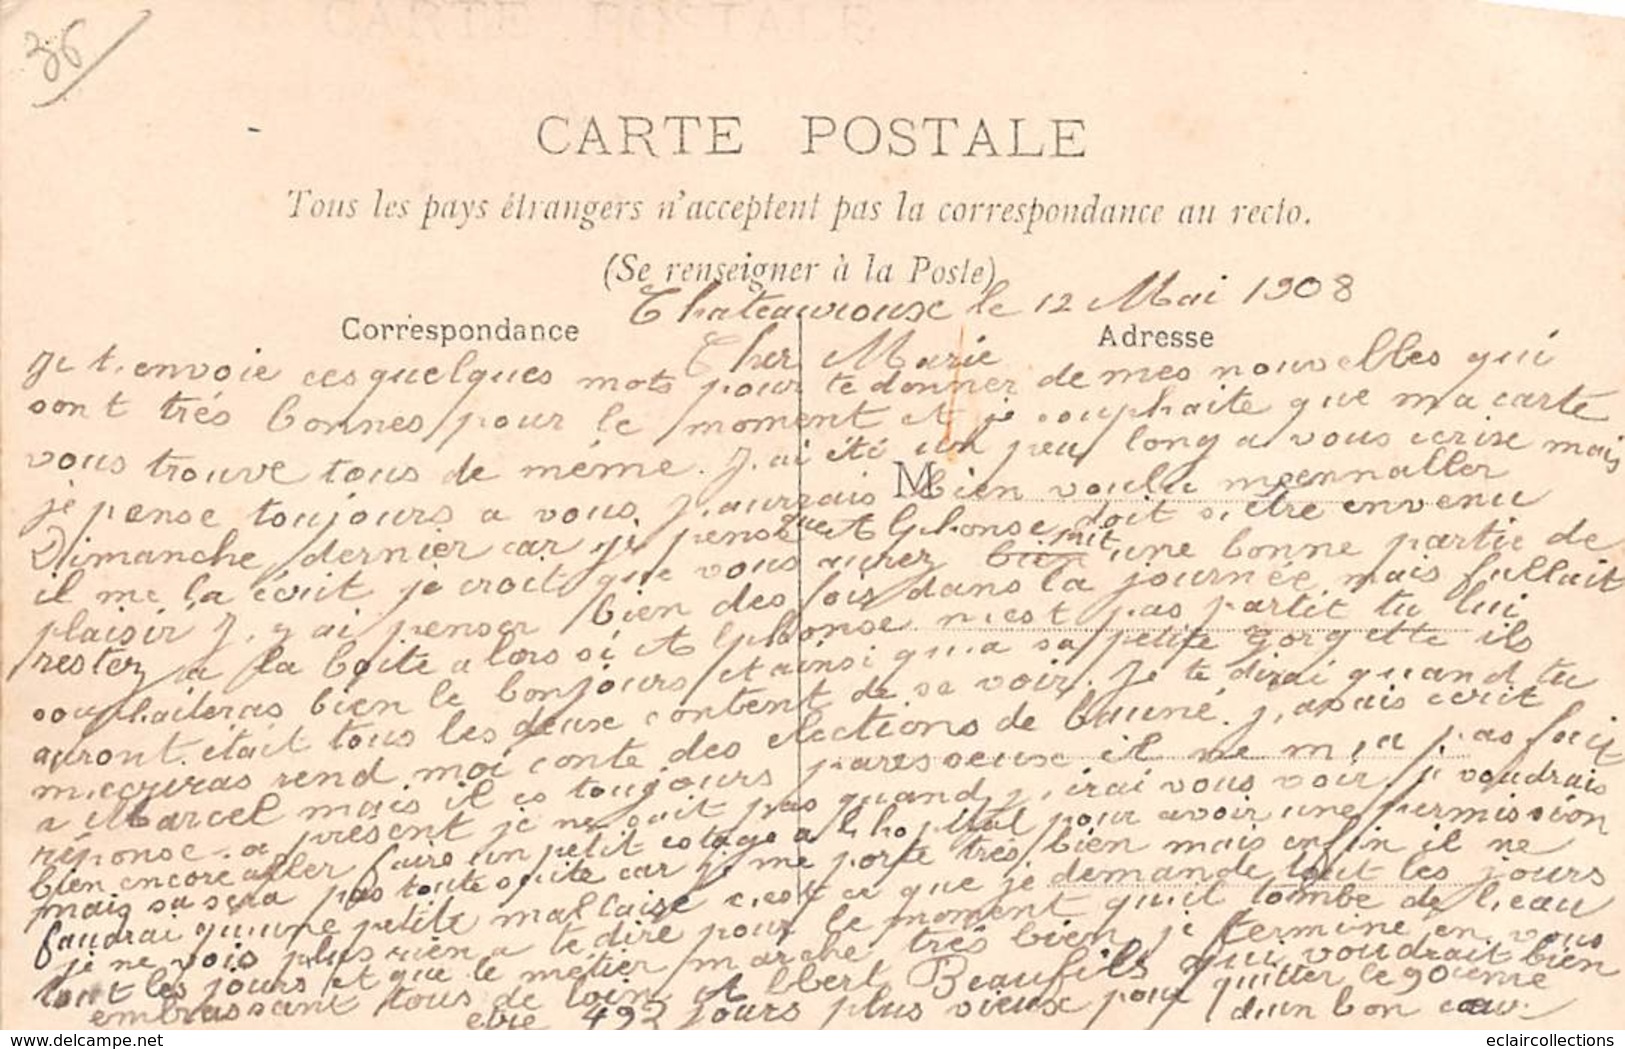 36
CARTE POSTALE
Tous les pays étrangers n'acceptent pas la correspondance au recto.
(Se renseigner à la Poste)
Chateauroux le 12 Mai 1908
Correspondance
Adresse
Cher Marie
Je t,envoie ces quelques mots pour te donner de mes nouvelles qui
sont trés bonnes pour le moment et je souphaite que ma carte
vous trouve tous de méme. J,ai été un peu long a vous ecrire mais
je pense toujours a vous, J,aurrais bien voulu mennaller
M
Dimanche dernier car je pense que Alphonse doit s,étre envenu
il me la écrit je croit que vous aurez bien fait une bonne partie de
plaisir J,y ai penser bien des fois dans la journée mais fallait
restez a la boite alors si Alphonse n,est pas partit tu lui
souphaiteras bien le bonjours et ainsi qu,a sa petite Gorgette ils
auront était tous les deux content de se voir. Je te dirai quand tu
m,ecriras rend moi conte des elections de Bauné. J,avais ecrit
a Marcel mais il es toujours paresseux il ne m,a pas fait
réponse. a présent je ne sait pas quand j,irai vous voir je voudrais
bien encore aller faire un petit estage a lhopital pour avoir une permission
mais sa sera pas toute suite car je me porte trés bien mais enfin il ne
faudrai qu,une petite mallaise c,est ce que je demande tout les jours
je ne vois plus rien a te dire pour le moment qu,il tombe de l,eau
tout les jours et que le métier marche trés bien, je termine en vous
embrassant tous de loin Albert Beaufils qui voudrait bien
etre 492 jours plus vieux pour quitter le 90ieme
d,un bon cœur.
eclaircollections